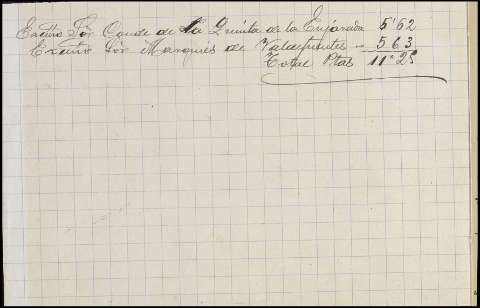 Excmo Sor Conde de la Quinta de la Enjarada 5'62
Excmo Sor Marqués de Valdefuentes - 5 63
Total Ptas 11'25